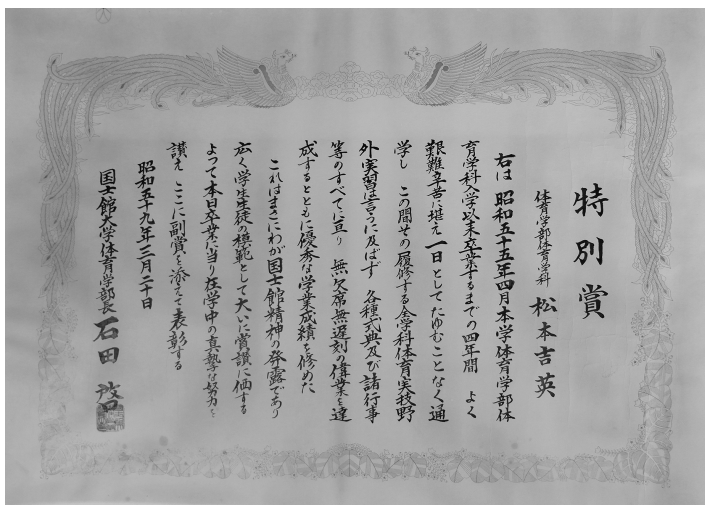 特別賞
体育学部体育学科 松本吉英
右は 昭和五十五年四月本学体育学部体
育学科入学以来卒業するまでの四年間 よく
艱難辛苦に堪え一日としてたゆむことなく通
学し この間その履修する全学科体育実技野
外実習は言うに及ばず 各種式典及び諸行事
等のすべてに亘り 無欠席無遅刻の偉業を達
成するとともに優秀な学業成績を修めた
これはまさにわが国士館精神の発露であり
広く学生生徒の模範として大いに賞讃に価する
よって本日卒業に当り在学中の真摯な努力を
讃え ここに副賞を添えて表彰する
昭和五十九年三月二十日
国士館大学体育学部長 石田